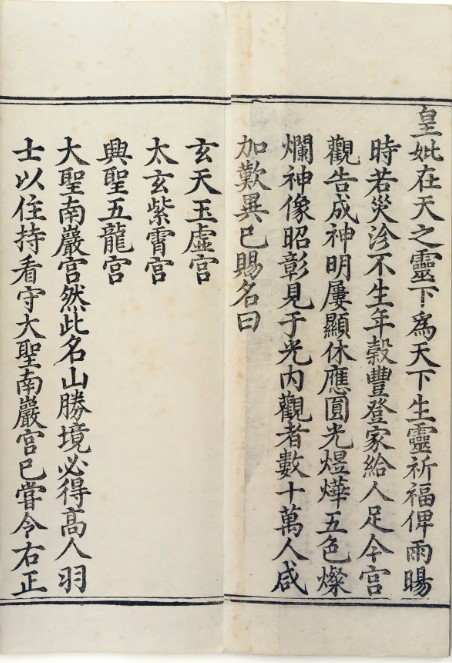 皇妣在天之靈下為天下生靈祈福俾雨暘
時若災沴不生年穀豐登家給人足今宮
觀告成神明屢顯休應圓光煜燁五色燦
爛神像昭彰見于光內觀者數十萬人咸
加歎異已賜名曰
玄天玉虛宮
太玄紫霄宮
興聖五龍宮
大聖南巖宮然此名山勝境必得高人羽
士以住持看守大聖南巖宮已嘗令右正